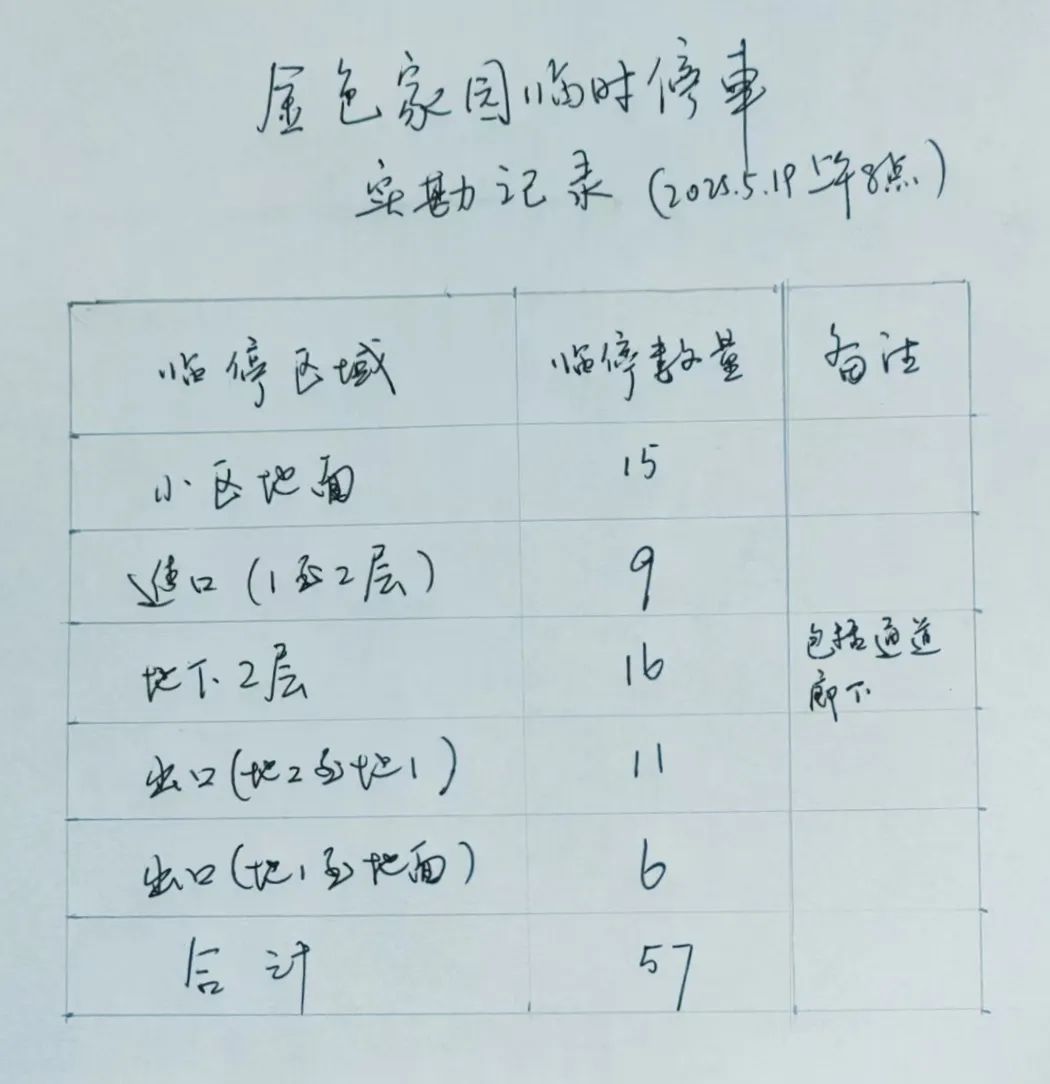 金色家园临时停車
实勘记录(2025.5.19上午8点)
临停区域 临停数量 备注
小区地面 15
进口(1至2层) 9
地下2层 16 包括通道
廊下
出口(地2至地1) 11
出口(地1至地面) 6
合计 57